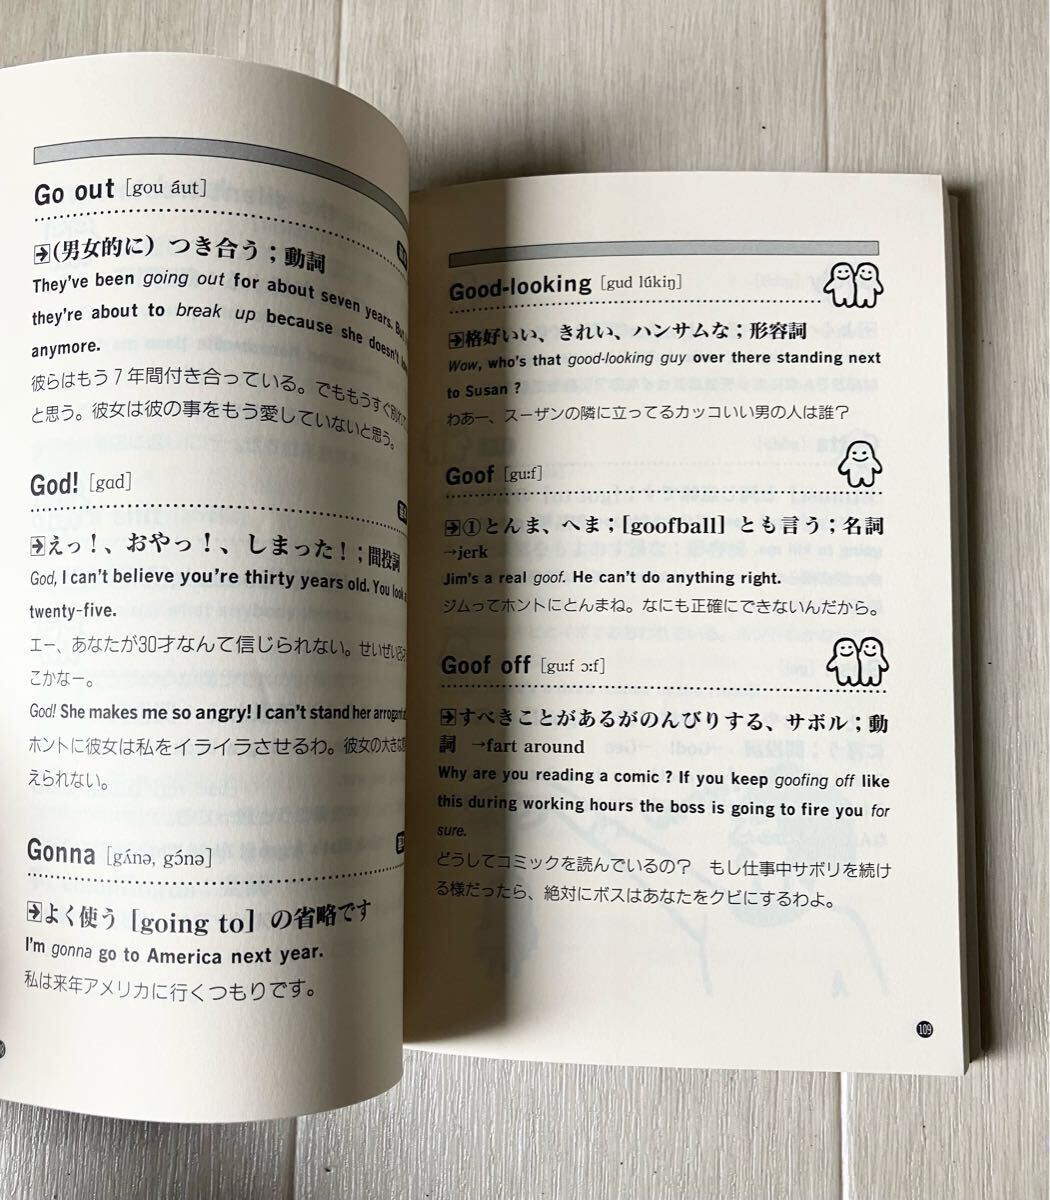 Go out [gou áut]
➔(男女的に) つき合う ; 動詞
They've been going out for about seven years. But
they're about to break up because she doesn't
anymore.
彼らはもう7年間付き合っている。でももうすぐ別れ
と思う。彼女は彼の事をもう愛していないと思う。
God! [gɑd]
➔えっ!、おやっ!、しまった! ; 間投詞
God, I can't believe you're thirty years old. You look
twenty-five.
エー、あなたが30才なんて信じられない。せいぜい
こかなー。
God! She makes me so angry! I can't stand her
ホントに彼女は私をイライラさせるわ。彼女の大きな
えられない。
Gonna [gʌ́nə, gɔ́nə]
➔よく使う [going to] の省略です
I'm gonna go to America next year.
私は来年アメリカに行くつもりです。
Good-looking [gud lúkiŋ]
➔格好いい、きれい、ハンサムな ; 形容詞
Wow, who's that good-looking guy over there standing next
to Susan ?
わあー、スーザンの隣に立ってるカッコいい男の人は誰?
Goof [gu:f]
➔①とんま、へま ; [goofball] とも言う ; 名詞
→jerk
Jim's a real goof. He can't do anything right.
ジムってホントにとんまね。なにも正確にできないんだから。
Goof off [gu:f ɔ:f]
➔すべきことがあるがのんびりする、サボル ; 動
詞 →fart around
Why are you reading a comic ? If you keep goofing off like
this during working hours the boss is going to fire you for
sure.
どうしてコミックを読んでいるの? もし仕事中サボリを続け
る様だったら、絶対にボスはあなたをクビにするわよ。
109